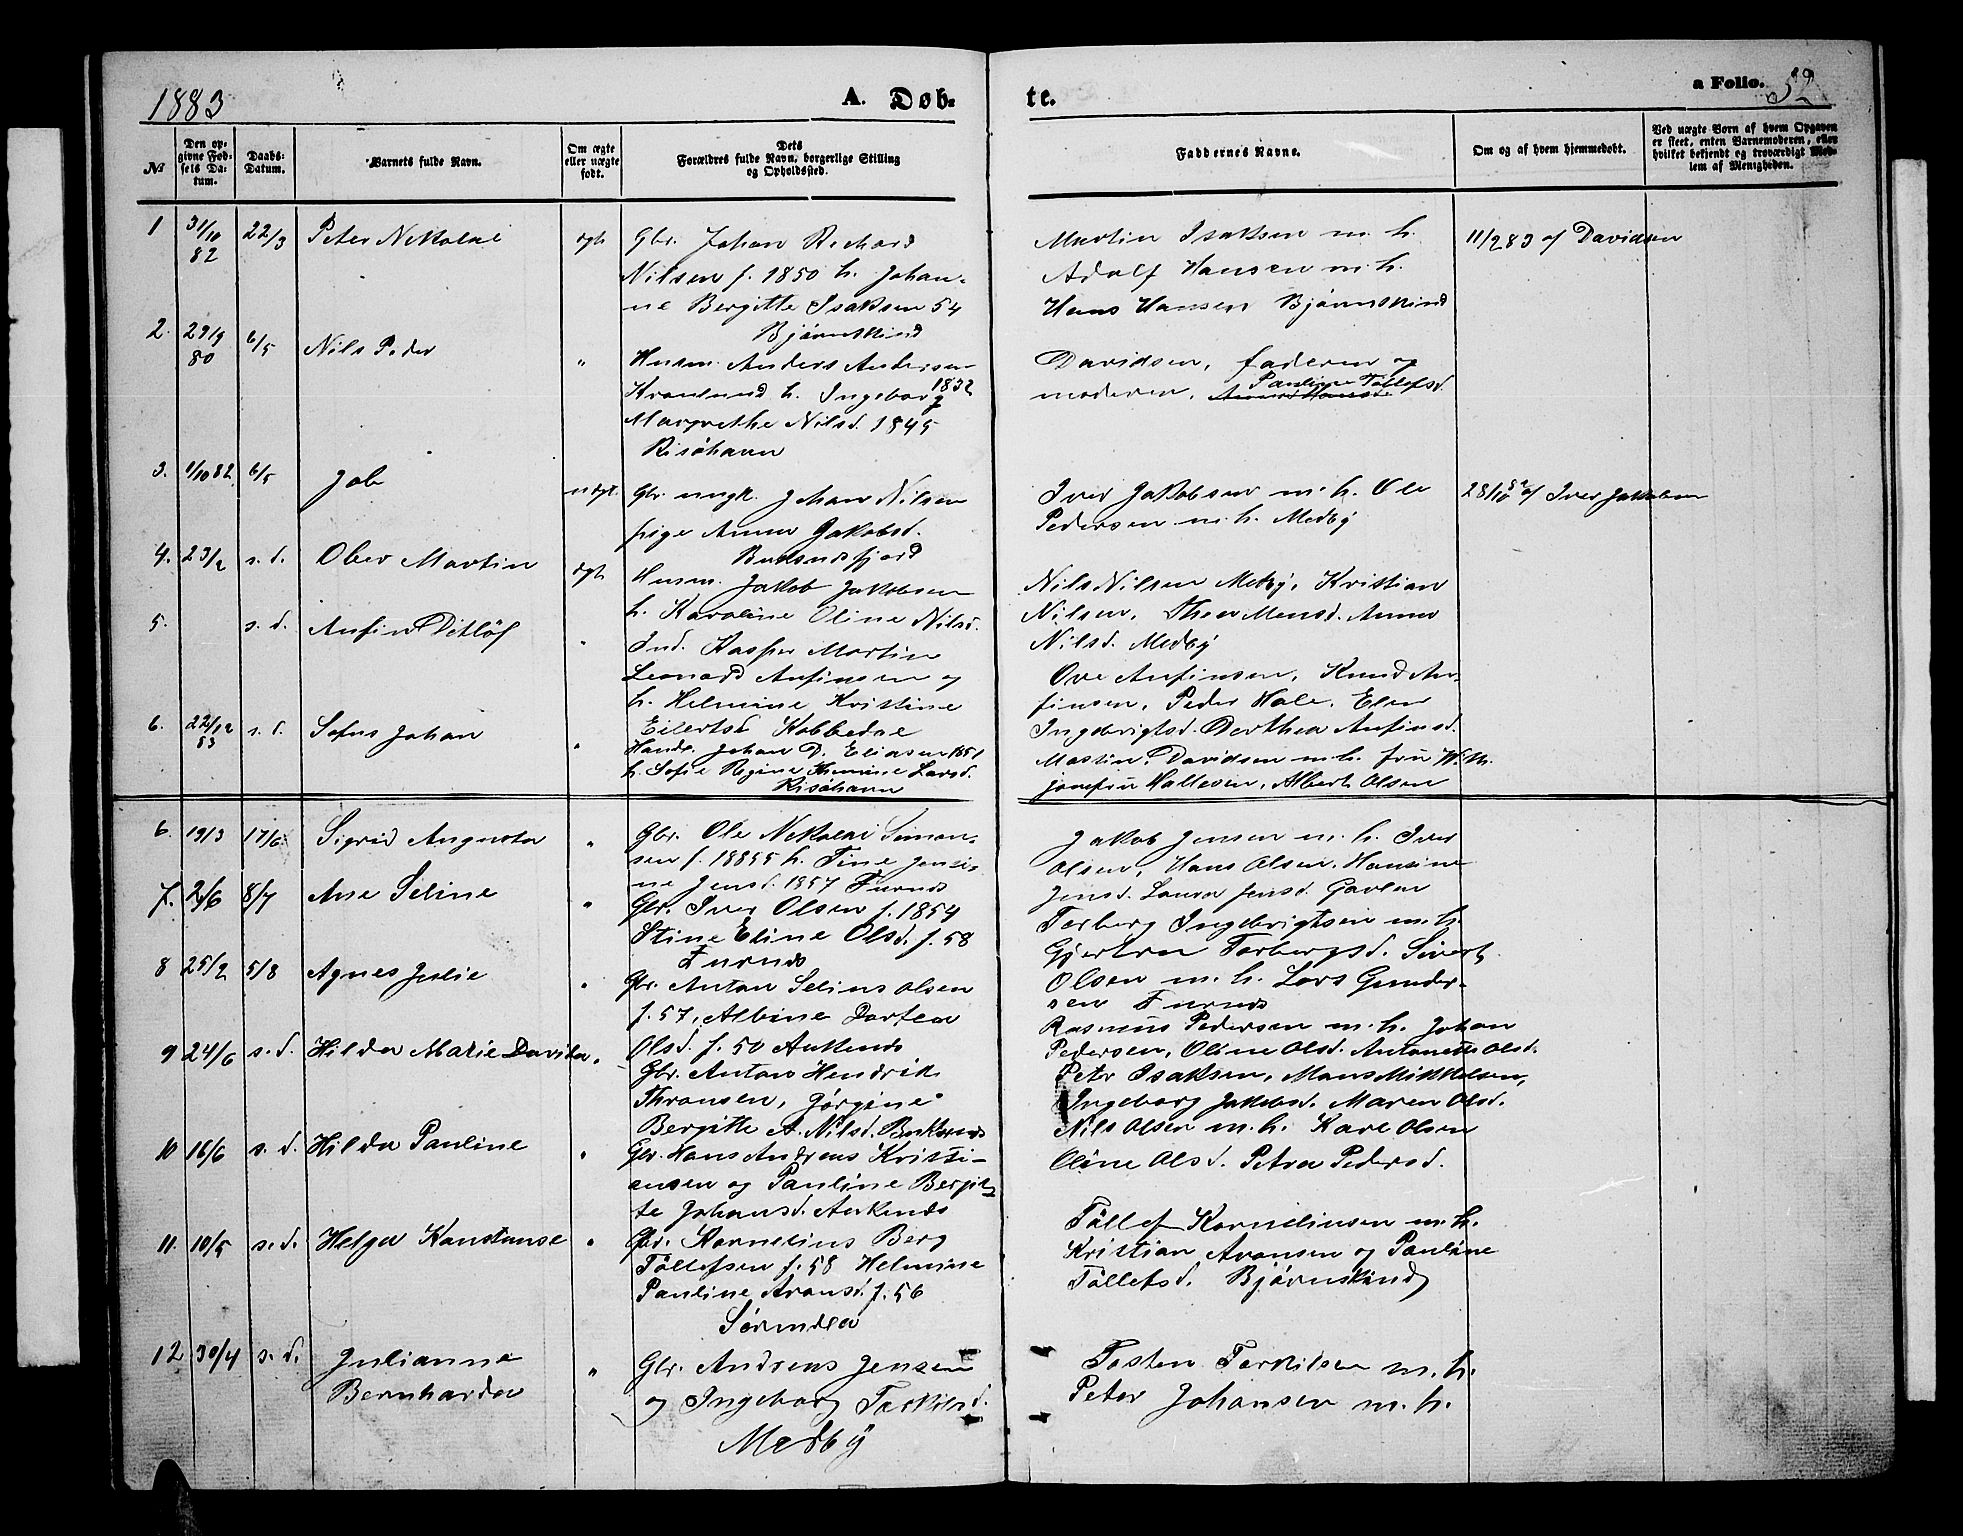 1883
A. Døb-
te.
a Folio. 52
№
Den op-
givne Fød-
sels Da-
tum.
Daabs-
Datum.
Barnets fulde Navn.
Om ægte
eller uægte
født.
Dets
Forældres fulde Navn, borgerlige Stilling
og Opholdssted.
Faddernes Navne.
Om og af hvem hjemmedøbt.
Ved uægte Born af hvem Opgaven
er skeet, enten Barnemoderen, eller
hvilket bekjendt og troværdigt Med-
lem af Menigheden.
1 31/10 82 22/3 Peter Nikolai ægt
Gbr. Johan Richard
Nilsen f. 1850 h. Johan-
ne Bergitte Isaksen 54
Bjørnskind
Martin Isaksen m. h.
Adolf Hansen m. h.
Hans Hansen Bjørnskind
11/2 83 af Davidsen
2. 29/9 80 6/5 Nils Peder "
Husm. Anders Andersen
Kranlund h. Ingeborg 1832
Margrethe Nilsd. 1845
Risøhavn
Davidsen, faderen og
moderen, Pauline Tollefsd.
3. 1/10 82 6/5 Job uægt.
Gbr. ungk. Johan Nilsen
pige Anna Jakobsd.
Iver Jakobsen m. h. Ole
Pedersen m. h. Medby
28/10 82 af Iver Jakobsen
4. 23/2 s. d. Ober Martin ægt
Husm. Jakob Jakobsen
h. Karoline Oline Nilsd.
Nils Nilsen Medby, Kristian
Nilsen, Thea Monsd. Anna
Nilsd. Medby
5. s. d. Anfin Ditløf "
Ind. Kasper Martin
Leonard Anfinsen og
h. Helmine Kristine
Eilertsd Kobbedal
Ove Anfinsen, Knud An-
finsen, Peder Hole, Elen
Ingebrigtsd. Dorthea Anfinsd.
6. 22/12 53 s. d. Sofus Johan "
Handl. Johan D. Eliasen 1851
h. Sofie Regine Larsd.
Risøhavn
Martin Davidsen m. h. fru
Josefin Hallesen, Albert Olsen
6. 19/3 17/6 Sigrid Augusta "
Gbr. Ole Nikolai Simon-
sen f. 18855 h. Tine Jensi-
ne Jensd. 1857 Furnes
Jakob Jensen m. h. Iver
Olsen, Hans Olsen, Hansine
Jensd. Laura Jensd. Gavlen
7. 2/6 8/7 Ane Seline "
Gbr. Iver Olsen f. 1854
Stine Eline Olsd. f. 58
Furnes
Torberg Ingebrigtsen m. h.
Gjertru Torbergsd. Sivert
Olsen m. h. Lars Gunder-
sen Furnes
8 25/2 5/8 Agnes Julie "
Gbr. Anton Selius Olsen
f. 57, Albine Dortea
Olsd. f. 50 Aukenes
Rasmus Pedersen m. h. Johan
Pedersen, Oline Olsd. Antonette Olsd.
9 24/6 s. d. Hilda Marie Davida "
Gbr. Anton Hendrik
Thronsen, Jørgine
Bergitte A. Nilsd. Buknes
Peter Isaksen, Mons Mikkelsen,
Ingeborg Jakobsd. Maren Olsd.
10 16/6 s. d. Hilda Pauline "
Gbr. Hans Andreas Kristi-
ansen og Pauline Bergit-
te Johansd. Aukenes
Nils Olsen m. h. Karl Olsen
Oline Olsd. Petra Pedersd.
11. 10/5 s. d. Helga Konstanse "
Gbr. Kornelius Berg
Tollefsen f. 58 Helmine
Pauline Aronsd. f. 56
Sørmela
Tøllef Korneliusen m. h.
Kristian Aronsen og Pauline
Tøllefsd. Bjørnskind
12 30/4 s. d. Julianne
Bernharda "
Gbr. Andreas Jensen
og Ingeborg Torkilsd.
Medby
Tosten Torkilsen m. h.
Peter Johansen m. h.